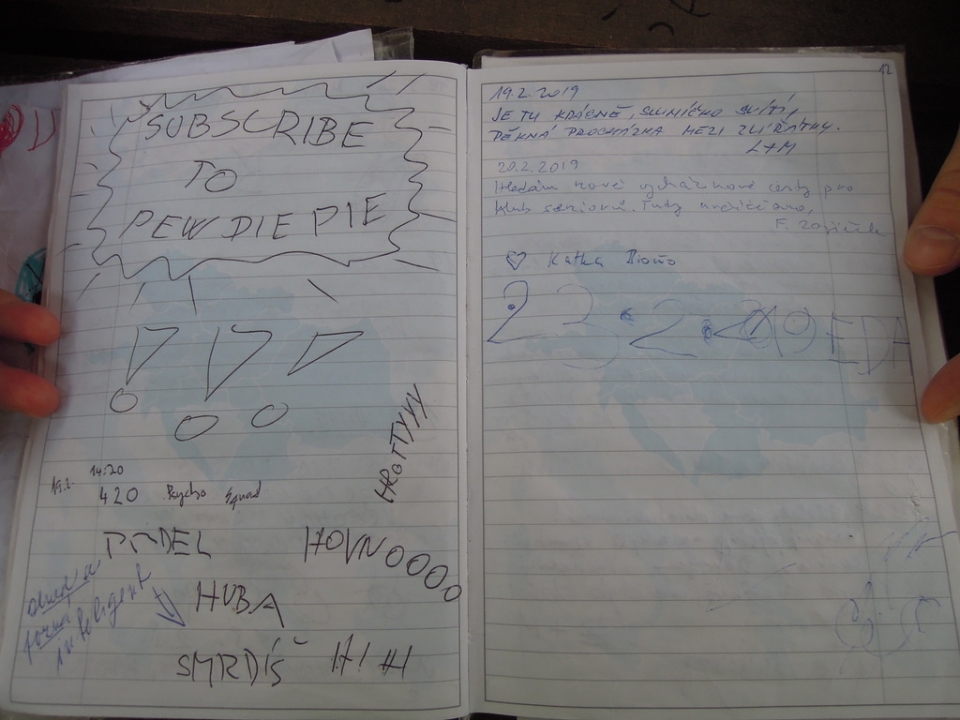 SUBSCRIBE
TO
PEW DIE PIE
!!!
HROTTYYY
19.2. 14:20
420 Psycho Squad
PRDEL
HOVNOOOO
HUBA
SMRDÍŠ
HIHI
inteligent
12
19.2.2019
JE TU KRÁSNĚ, SLUNÍČKO SVÍTÍ,
PĚKNÁ PROCHÁZKA MEZI ZVÍŘÁTKY.
L+M
20.2.2019
Hledám nové vycházkové cesty pro
klub seniorů. Tudy určitě ano.
F.
♡ Katka
23.2.2019 EDA